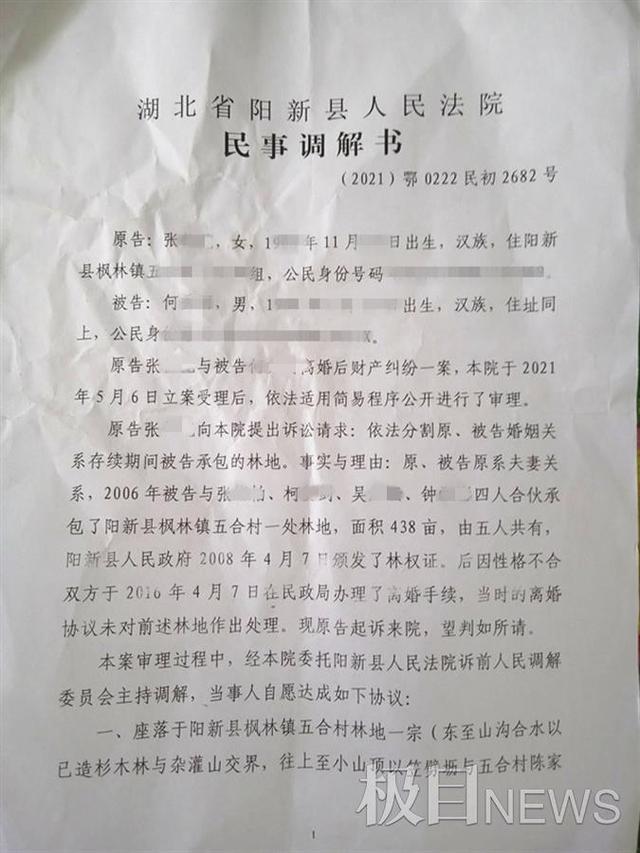 湖北省阳新县人民法院
民事调解书
（2021）鄂 0222 民初 2682 号
原告：张 ，女，1 年 11 月 日出生，汉族，住阳新
县枫林镇五 组，公民身份号码
被告：何 ，男，1 出生，汉族，住址同
上，公民身 X。
原告张 与被告 离婚后财产纠纷一案，本院于 2021
年 5 月 6 日立案受理后，依法适用简易程序公开进行了审理。
原告张 向本院提出诉讼请求：依法分割原、被告婚姻关
系存续期间被告承包的林地。事实与理由：原、被告原系夫妻关
系，2006 年被告与张 柏、柯 、吴 、钟 四人合伙承
包了阳新县枫林镇五合村一处林地，面积 438 亩，由五人共有，
阳新县人民政府 2008 年 4 月 7 日颁发了林权证。后因性格不合
双方于 2016 年 4 月 7 日在民政局办理了离婚手续，当时的离婚
协议未对前述林地作出处理。现原告起诉来院，望判如所请。
本案审理过程中，经本院委托阳新县人民法院诉前人民调解
委员会主持调解，当事人自愿达成如下协议：
一、座落于阳新县枫林镇五合村林地一宗（东至山沟合水以
已造杉木林与杂灌山交界，往上至小山顶以 与五合村陈家
极目NEWS
1